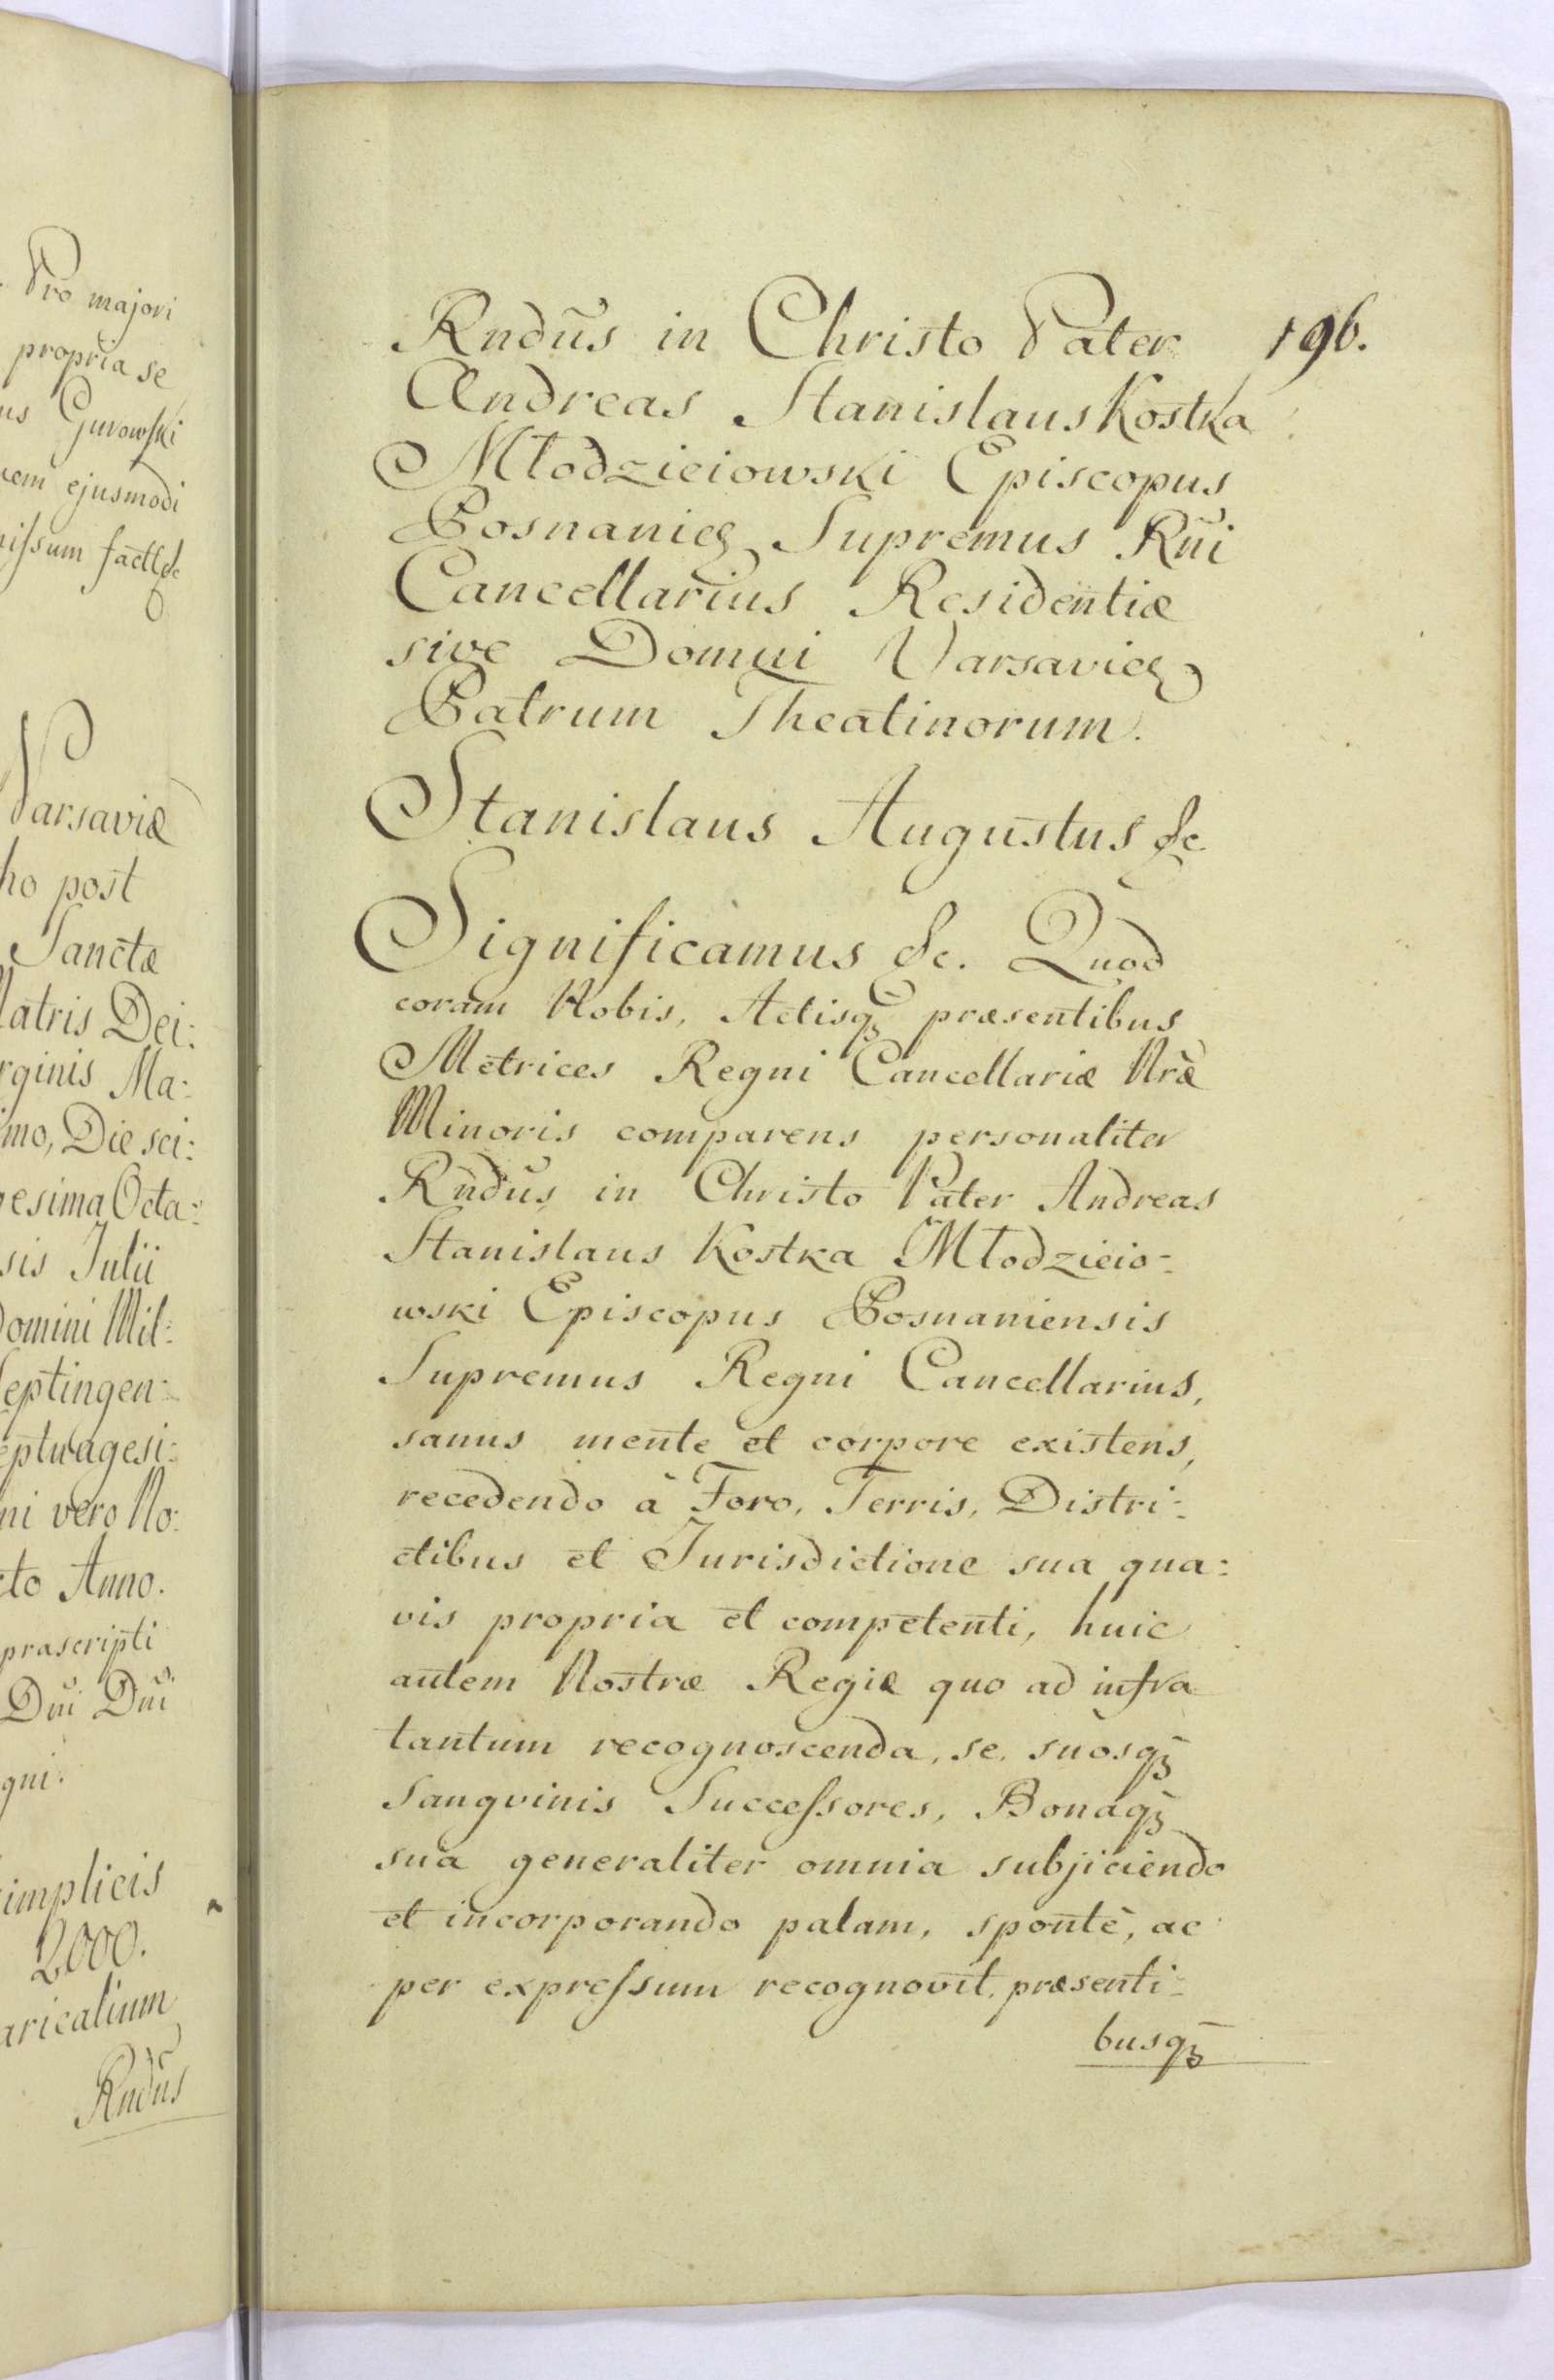 . Pro majori
propria se
us Gurowski
em ejusmodi
issum factt &c
Varsaviæ
ho post
Sanctæ
Matris Dei:
rginis Ma:
mo, Die sci:
gesima Octa:
sis Julii
Domini Mil:
Septingen:
eptuagesi:
ni vero No:
cto Anno.
præscripti
Dni Dni
gni.
implicis
2000.
aricalium
Rndus
Rndus in Christo Pater 196.
Andreas Stanislaus Kostka
Młodzieiowski Episcopus
Posnanieñ Supremus Rni
Cancellarius Residentiæ
sive Domui Varsavieñ
Patrum Theatinorum.
Stanislaus Augustus &c.
Significamus &c. Quod
coram Nobis, Actisq̃ præsentibus
Metrices Regni Cancellariæ Nræ
Minoris comparens personaliter
Rndus in Christo Pater Andreas
Stanislaus Kostka Młodzieio-
wski Episcopus Posnaniensis
Supremus Regni Cancellarius,
sanus mente et corpore existens,
recedendo à Foro, Terris, Distri:
ctibus et Jurisdictione sua qua:
vis propria et competenti, huic
autem Nostræ Regiæ quo ad infra
tantum recognoscenda, se, suosq̃
Sangvinis Successores, Bonaq̃
sua generaliter omnia subjiciendo
et incorporando palam, spontè, ac
per expressum recognovit, præsenti-
busq̃